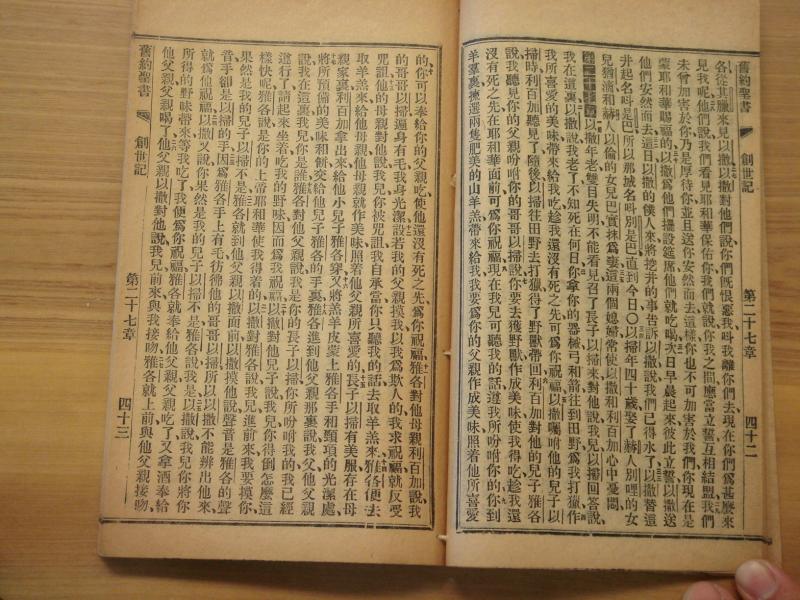 舊約聖書 創世記 第二十七章 四十二
見我呢、他們說、我們看見耶和華保佑你、我們就說、你我之間應當立誓、互相結盟、我們
未曾加害於你、乃是厚待你、並且送你安然而去、這樣你也不可加害於我們、你現在是
蒙耶和華賜福的、以撒就爲他們擺設筵席、他們就吃喝、次日早晨起來、彼此立誓、以撒送
他們安然而去、這日以撒的僕人來、將挖井的事告訴以撒說、我們已得水了、以撒替這
井起名叫是巴、所以那城名叫別是巴、直到今日〇以掃年四十歲、娶了赫人別哩的女
兒猶滴、和赫人以倫的女兒巴實抹爲妻、這兩個媳婦常使以撒和利百加心中憂悶、
第二十七章 以撒年老、雙目失明、不能看見、召了長子以掃來、對他說、我兒、以掃回答說、
我在這裏、以撒說、我老了、不知死在何日、你拿你的器械弓和箭、往田野爲我打獵、作
我所喜愛的美味、帶來給我吃、趁我還沒有死之先、可爲你祝福、以撒囑咐他的兒子以
掃時、利百加聽見了、隨後以掃往田野去打獵、得了野獸帶回、利百加對他的兒子雅各
說、我聽見你的父親吩咐你的哥哥以掃說、你要去獲野獸、作成美味、使我得吃、趁我還
沒有死之先、在耶和華面前可爲你祝福、現在我兒可聽我的話、遵我所吩咐你的、你到
羊羣裏揀選兩隻肥美的山羊羔、帶來給我、我要爲你的父親作成美味、照着他所喜愛
的、你可以奉給你的父親吃、使他還沒有死之先、爲你祝福、雅各對他母親利百加說、我
的哥哥以掃遍身有毛、我身光潔、設若我的父親摸我、以我爲欺人的、我求祝福、就反受
咒詛、他的母親對他說、我兒、你被咒詛、我自承當、你只聽我的話、去取羊羔來、雅各便去
取羊羔來給他母親、他母親就作美味、照着他父親所喜愛的、長子以掃有美服、存在母
親家裏、利百加拿出來給他小兒子雅各穿、又將羔羊皮蒙上雅各手、和頸項的光潔處、
將所預備的美味和餅、交給他兒子雅各的手裏、雅各進到他父親那裏說、我父、他父親
說、我在這裏、我兒你是誰、雅各對他父親說、我是你的長子以掃、你所吩咐我的、我已經
遵行了、請起來坐着、吃我的野味、因而爲我祝福、以撒對他兒子說、我兒你得倒怎麼這
樣快呢、雅各說、是你的上帝耶和華使我得着的、以撒對雅各說、我兒進前來、我要摸你、
果然是我的兒子以掃不是、雅各就到他父親以撒面前、以撒摸他、說、聲音是雅各的聲
音、手卻是以掃的手、因爲雅各手上有毛、彷彿他的哥哥以掃的手、所以以撒不能辨出他來、
就爲他祝福、以撒又說、你果然是我的兒子以掃不是、雅各說、我是、以撒說、我兒你將你
所得的野味帶來、等我吃了、我便爲你祝福、雅各就奉給他父親、父親吃了、又拿酒奉給
他父親、父親喝了、他父親以撒對他說、我兒前來與我接吻、雅各就上前與他父親接吻、
舊約聖書 創世記 第二十七章 四十三